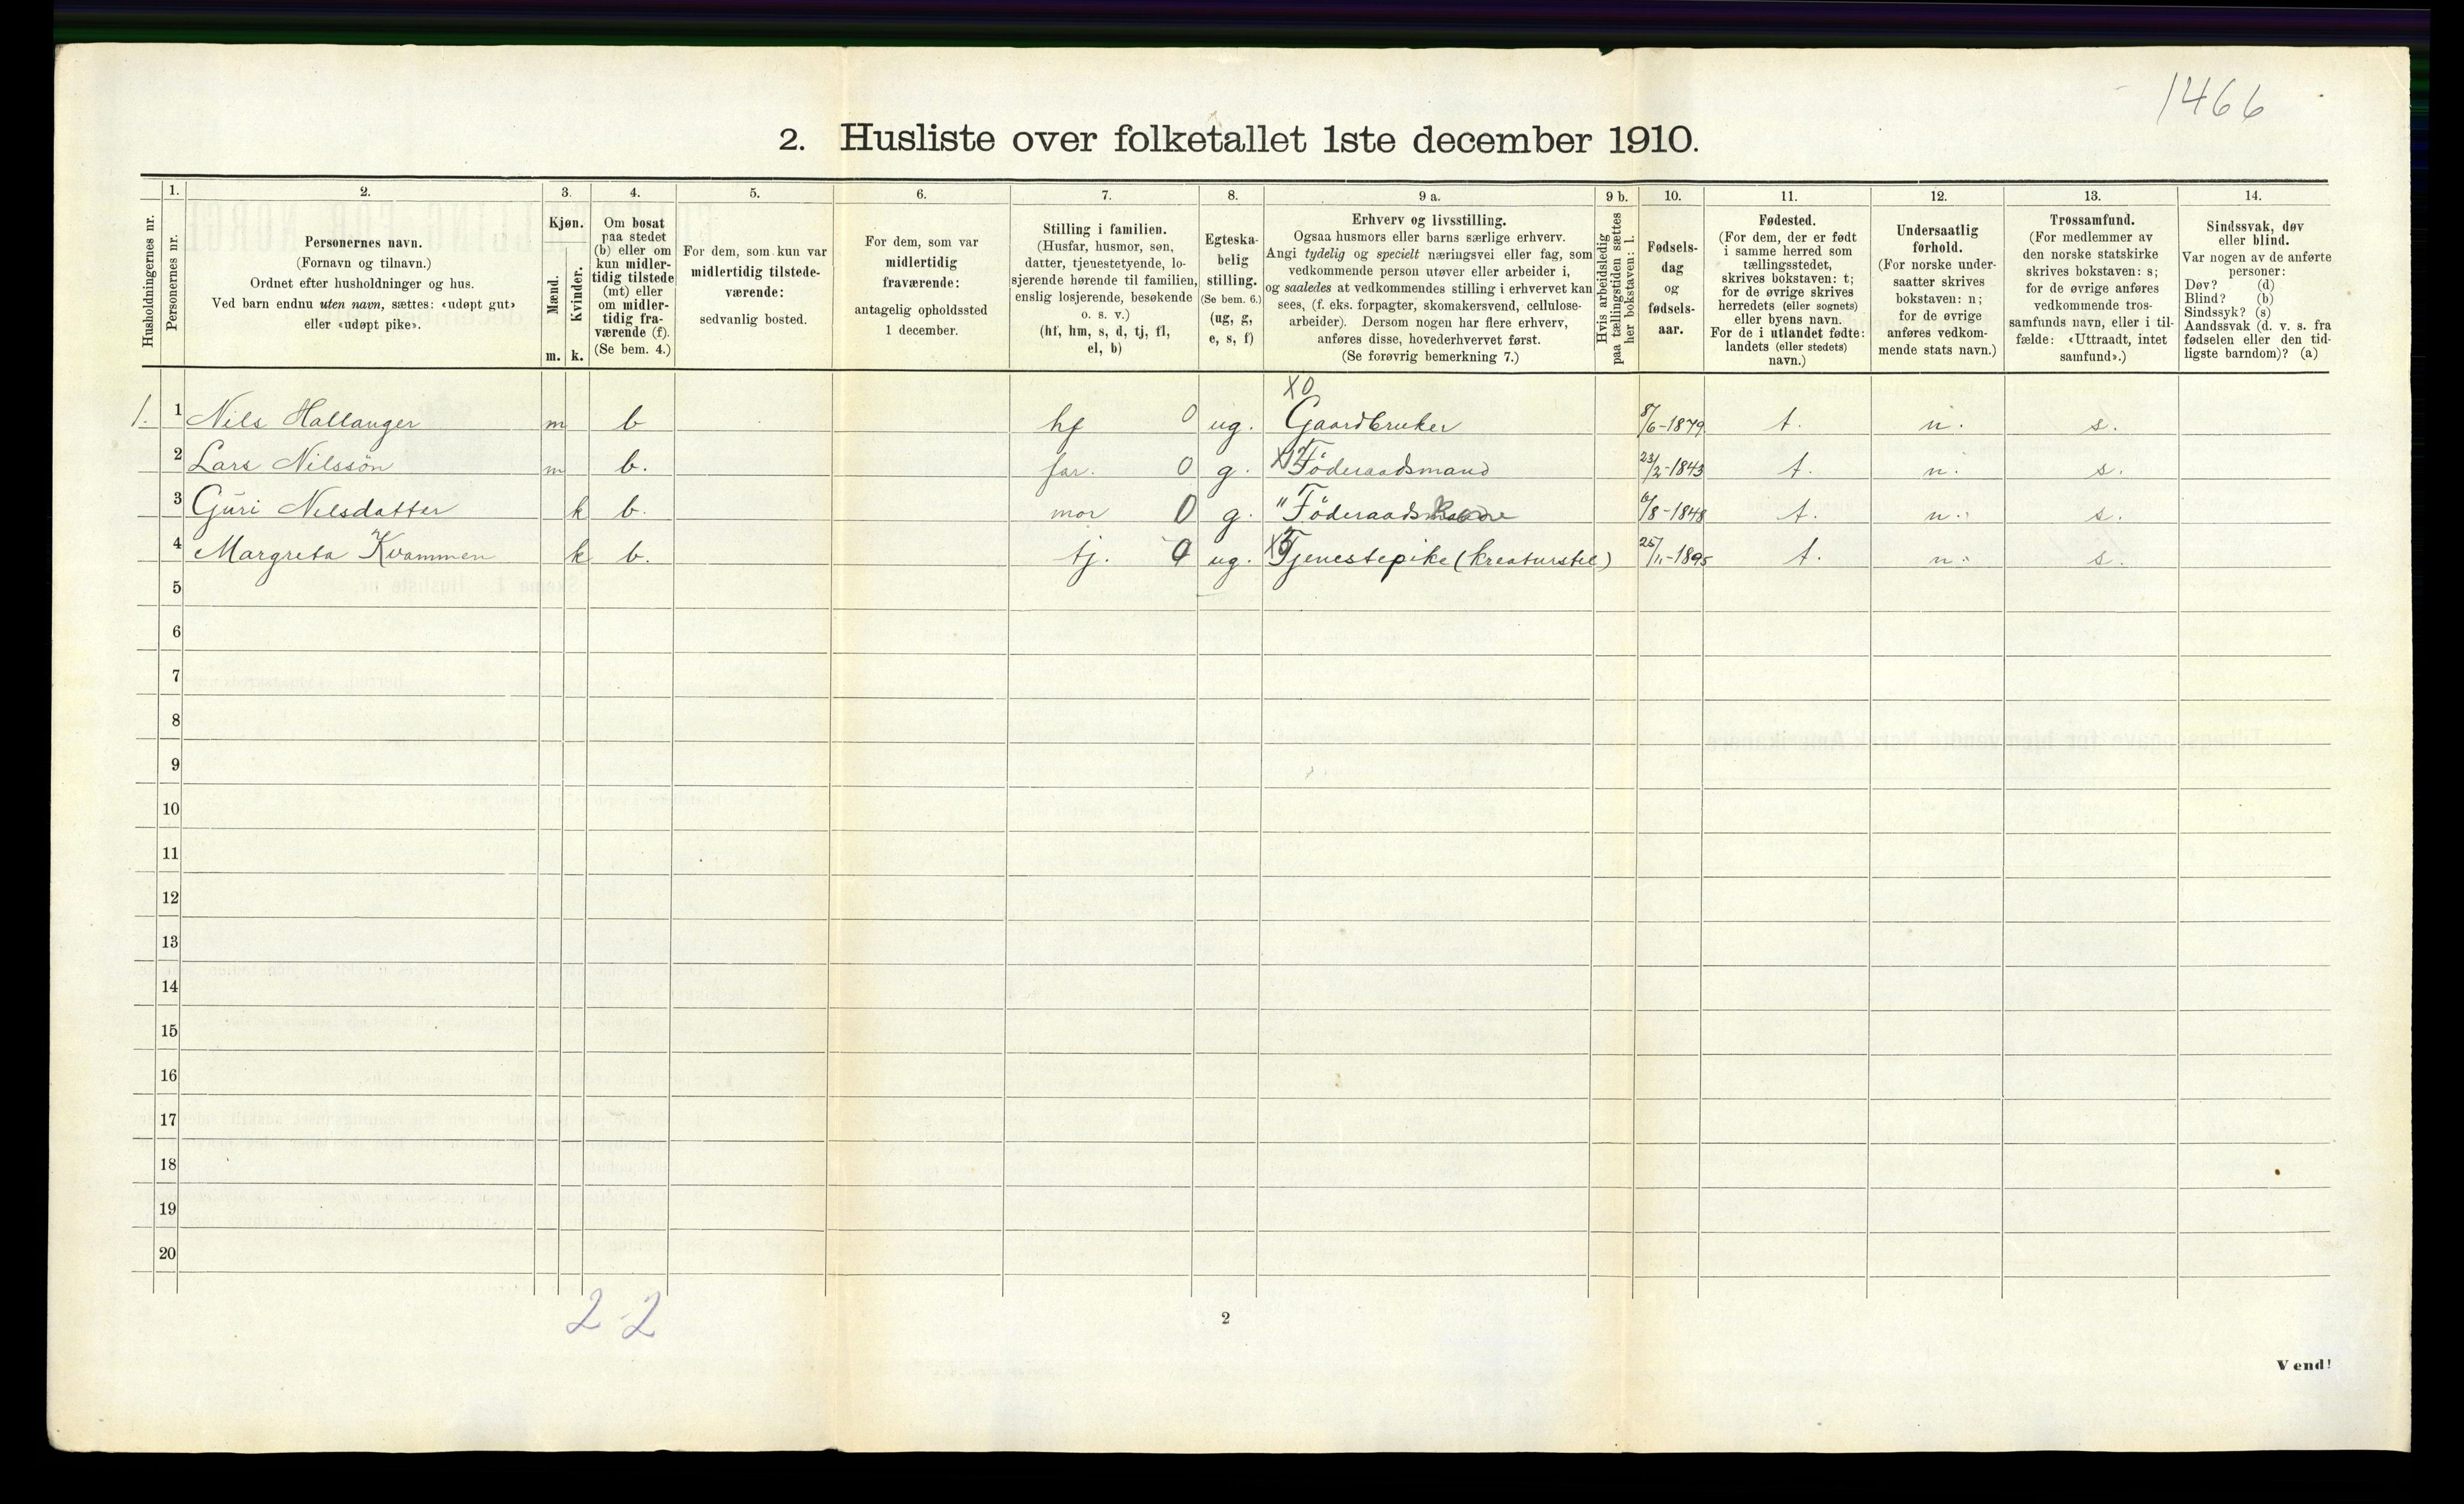 1466
2. Husliste over folketallet 1ste december 1910.
Husholdningernes nr.
1.
Personernes nr.
2.
Personernes navn.
(Fornavn og tilnavn.)
Ordnet efter husholdninger og hus.
Ved barn endnu uten navn, sættes: «udøpt gut»
eller «udøpt pike».
3.
Kjøn.
Mænd.
Kvinder.
m. k.
4.
Om bosat
paa stedet
(b) eller om
kun midler-
tidig tilstede
(mt) eller
om midler-
tidig fra-
værende (f).
(Se bem. 4.)
5.
For dem, som kun var
midlertidig tilstede-
værende:
sedvanlig bosted.
6.
For dem, som var
midlertidig
fraværende:
antagelig opholdssted
1 december.
7.
Stilling i familien.
(Husfar, husmor, søn,
datter, tjenestetyende, lo-
sjerende hørende til familien,
enslig losjerende, besøkende
o. s. v.)
(hf, hm, s, d, tj, fl,
el, b)
8.
Egteska-
belig
stilling.
(Se bem. 6.)
(ug, g,
e, s, f)
9 a.
Erhverv og livsstilling.
Ogsaa husmors eller barns særlige erhverv.
Angi tydelig og specielt næringsvei eller fag, som
vedkommende person utøver eller arbeider i,
og saaledes at vedkommendes stilling i erhvervet kan
sees, (f. eks. forpagter, skomakersvend, cellulose-
arbeider). Dersom nogen har flere erhverv,
anføres disse, hovederhvervet først.
(Se forøvrig bemerkning 7.)
9 b.
Hvis arbeidsledig
paa tællingstiden sættes
her bokstaven: l.
10.
Fødsels-
dag
og
fødsels-
aar.
11.
Fødested.
(For dem, der er født
i samme herred som
tællingsstedet,
skrives bokstaven: t;
for de øvrige skrives
herredets (eller sognets)
eller byens navn.
For de i utlandet fødte:
landets (eller stedets)
navn.)
12.
Undersaatlig
forhold.
(For norske under-
saatter skrives
bokstaven: n;
for de øvrige
anføres vedkom-
mende stats navn.)
13.
Trossamfund.
(For medlemmer av
den norske statskirke
skrives bokstaven: s;
for de øvrige anføres
vedkommende tros-
samfunds navn, eller i til-
fælde: «Uttraadt, intet
samfund».)
14.
Sindssvak, døv
eller blind.
Var nogen av de anførte
personer:
Døv? (d)
Blind? (b)
Sindssyk? (s)
Aandssvak (d. v. s. fra
fødselen eller den tid-
ligste barndom)? (a)
X0
1. 1 Nils Hallanger m b hf 0 ug. Gaardbruker 8/6-1879 t. n. s.
2 Lars Nilssön m b. far. 0 g. Föderaadsmand 23/2-1843 t. n. s.
3 Guri Nilsdatter k b. mor 0 g. " 6/8-1848 t. n. s.
4 Margreta Kvammen k b. tj. 0 ug. Tjenestepike (kreaturstel) 25/11-1895 t. n. s.
5
6
7
8
9
10
11
12
13
14
15
16
17
18
19
20
2-2
2
Vend!